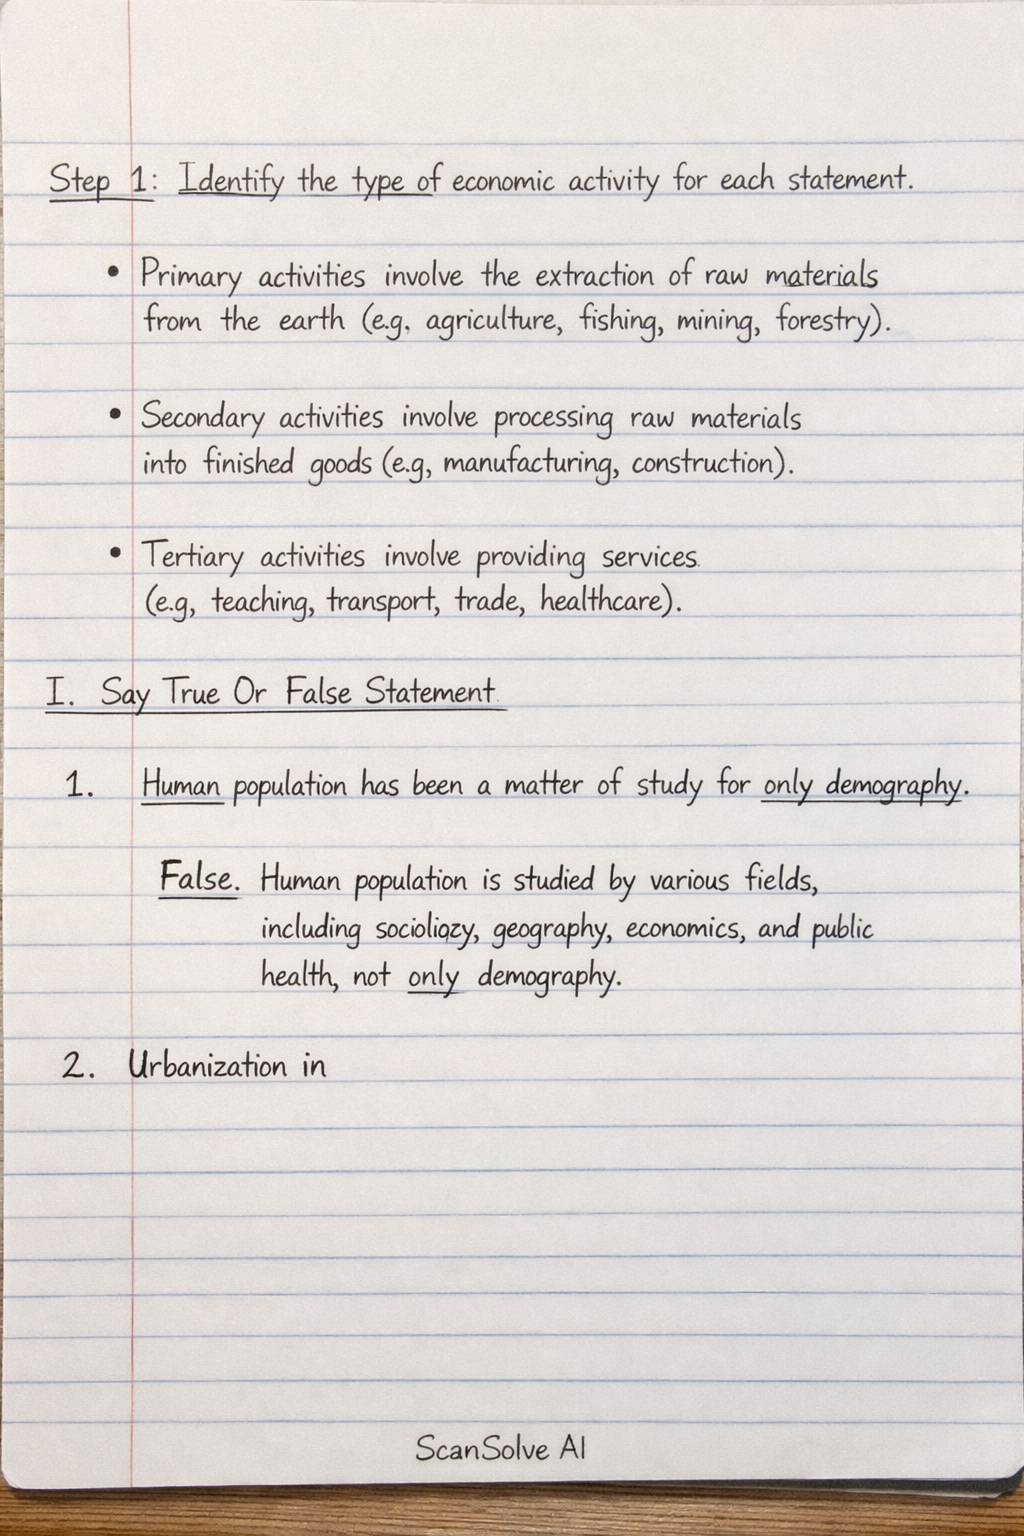 Step 1: Identify the type of economic activity for each statement.
• Primary activities involve the extraction of raw materials
from the earth (e.g. agriculture, fishing, mining, forestry).
• Secondary activities involve processing raw materials
into finished goods (e.g, manufacturing, construction).
• Tertiary activities involve providing services.
(e.g, teaching, transport, trade, healthcare).
I. Say True Or False Statement.
1. Human population has been a matter of study for only demography.
False. Human population is studied by various fields,
including socioliozy, geography, economics, and public
health, not only demography.
2. Urbanization in
ScanSolve AI